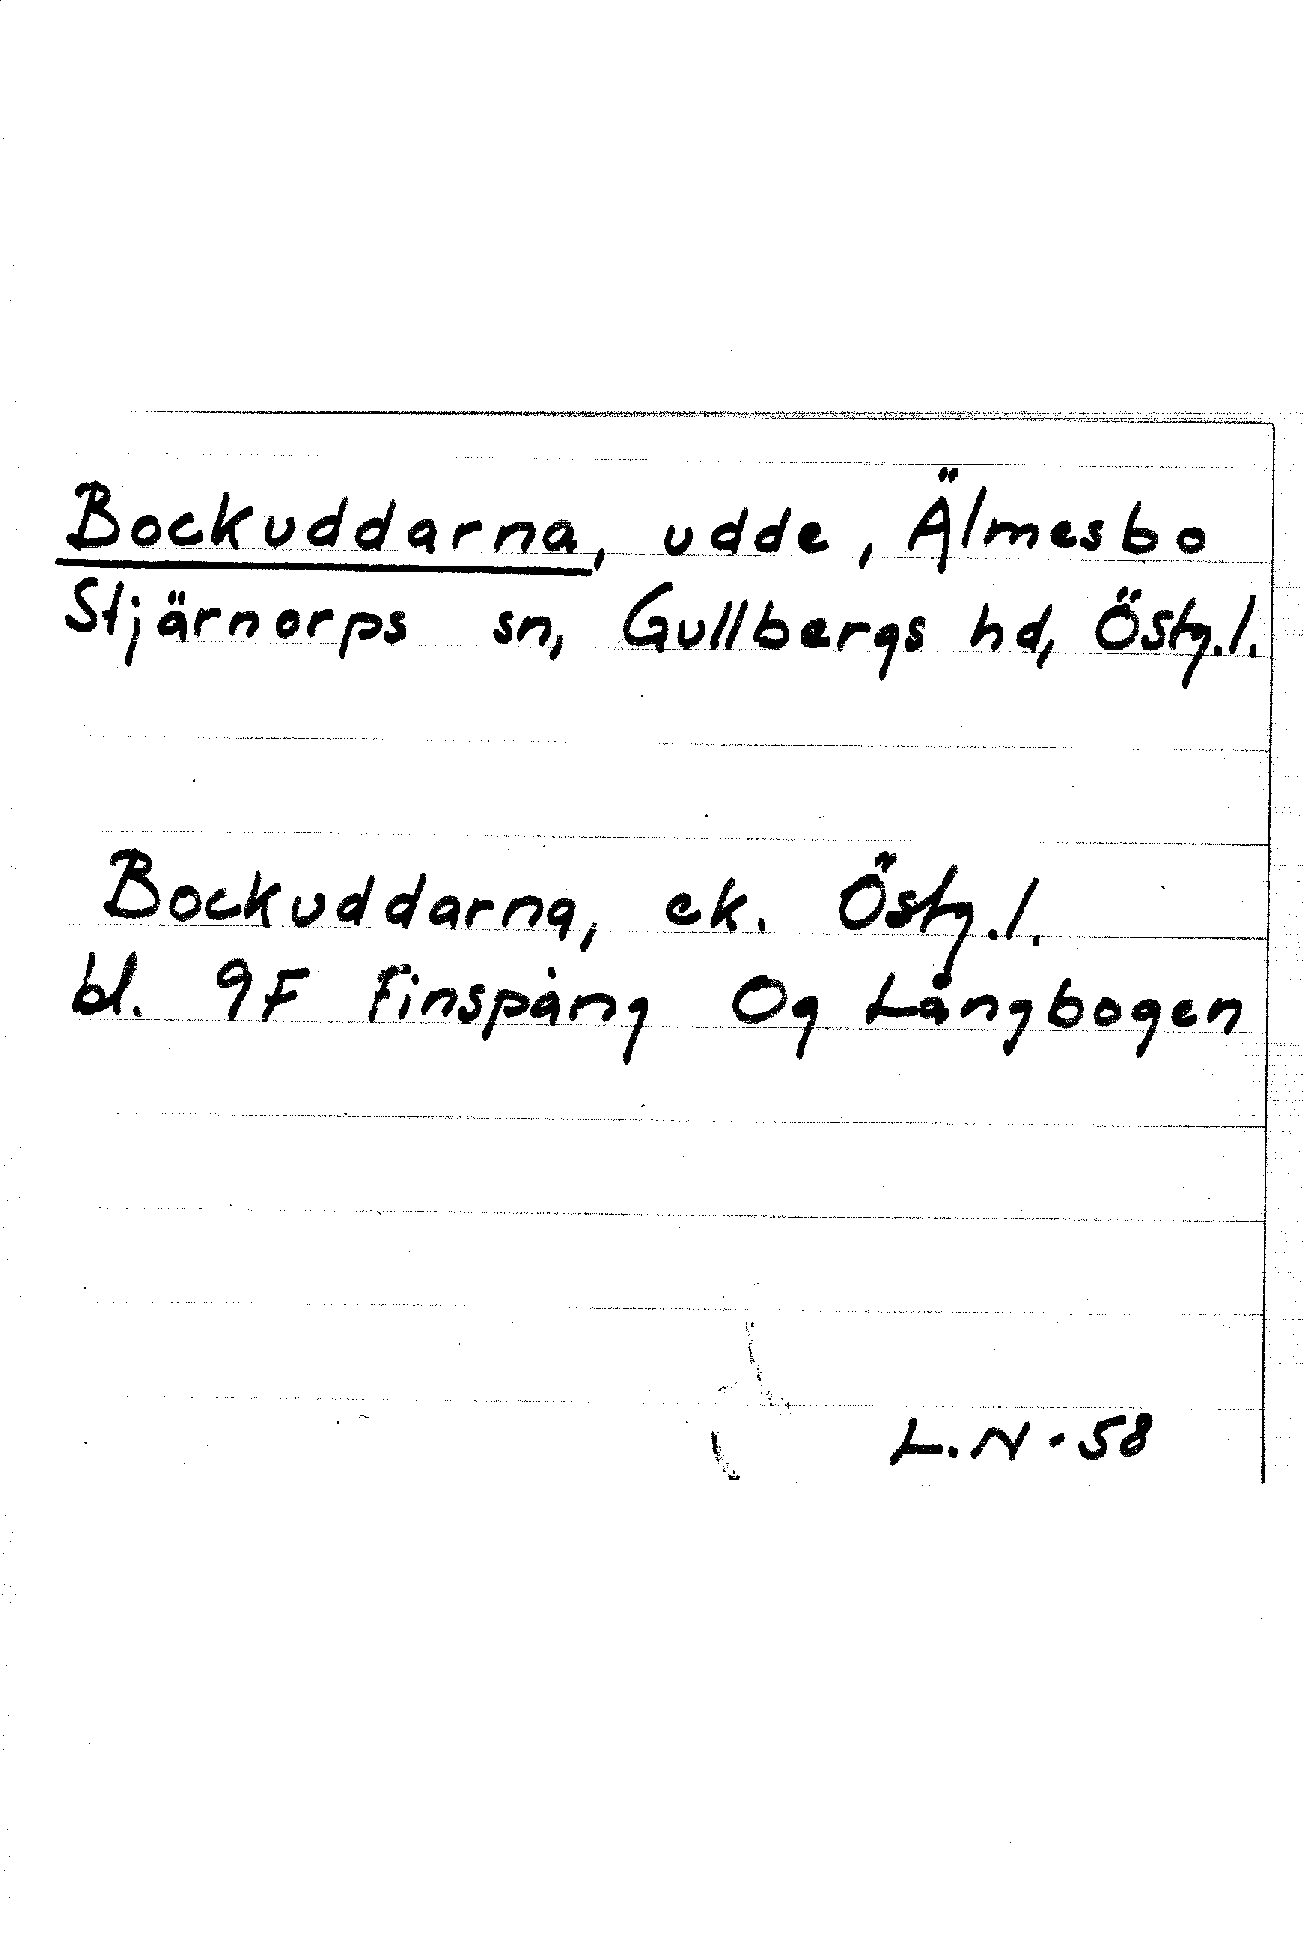 Bockuddarna, udde, Älmesbo
Stjärnorps sn, Gullbergs hd, Östg.l.
Bockuddarna, ek. Östg.l.
bl. 9F Finspång Og Långbogen
L.N-58